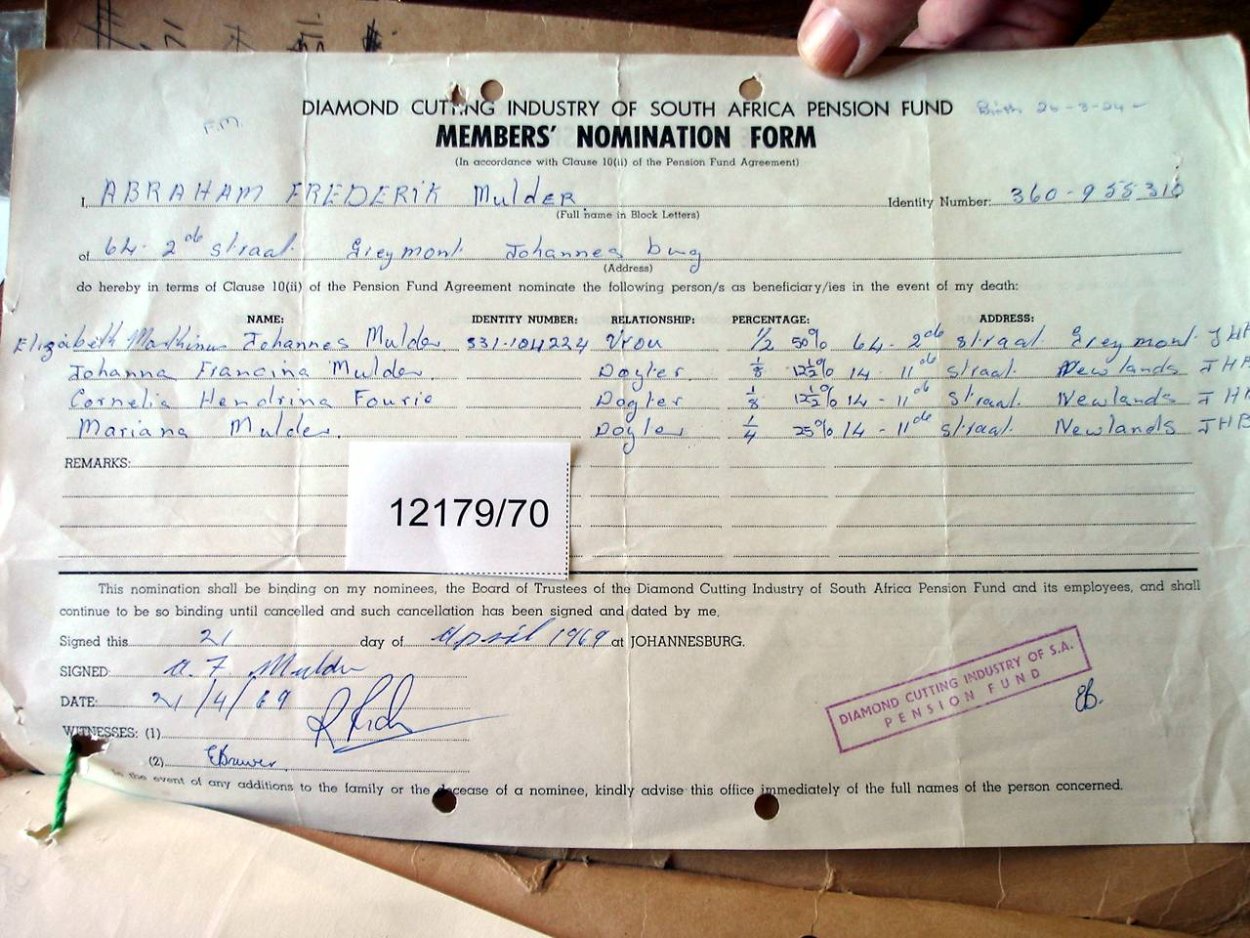 DIAMOND CUTTING INDUSTRY OF SOUTH AFRICA PENSION FUND Birth 26-3-24
F.M.
MEMBERS' NOMINATION FORM
(In accordance with Clause 10(ii) of the Pension Fund Agreement)
I, ABRAHAM FREDERIK MulDER Identity Number: 360-955310
(Full name in Block Letters)
of 64. 2de straal. Greymont. Johannes burg
(Address)
do hereby in terms of Clause 10(ii) of the Pension Fund Agreement nominate the following person/s as beneficiary/ies in the event of my death:
NAME: IDENTITY NUMBER: RELATIONSHIP: PERCENTAGE: ADDRESS:
Elizabeth Marthinus Johannes Mulder 331-104224 Vrou 1/2 50% 64- 2de straal Greymont JHB
Johanna Francina Mulder. Dogter. 1/8 12½% 14 - 11de straal. Newlands JHB
Cornelia Hendrina Fourie Dogter 1/8 12½% 14 - 11de Straal. Newlands JHB
Mariana Mulder. Dogter 1/4 25% 14 - 11de straal. Newlands JHB
REMARKS:
12179/70
This nomination shall be binding on my nominees, the Board of Trustees of the Diamond Cutting Industry of South Africa Pension Fund and its employees, and shall
continue to be so binding until cancelled and such cancellation has been signed and dated by me.
Signed this 21 day of April 1969 at JOHANNESBURG.
SIGNED: A. F Mulder
DATE: 21/4/69
WITNESSES: (1)
(2) EBrower
DIAMOND CUTTING INDUSTRY OF S.A.
PENSION FUND
EB.
In the event of any additions to the family or the decease of a nominee, kindly advise this office immediately of the full names of the person concerned.